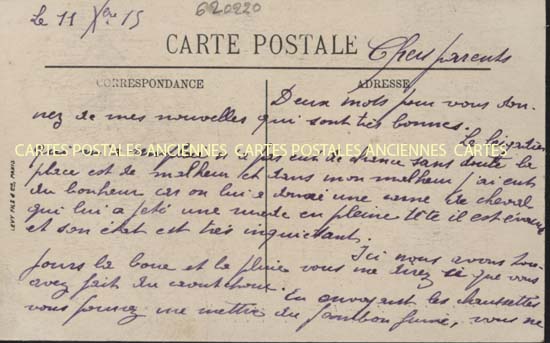 Le 11 Xbre 15
620220
CARTE POSTALE
Chers parents
CORRESPONDANCE
ADRESSE
Deux mots pour vous don-
nez de mes nouvelles qui sont très bonnes.
Le brigadier
CARTES POSTALES ANCIENNES CARTES POSTALES ANCIENNES CARTES
n'a pas eu de chance sans doute la
place est de malheur et dans mon malheur j'ai eu
du bonheur car on lui a donné une de cheval
qui lui a jeté une ruade en pleine tête il est
et son état est très inquiétant.
Ici nous avons tou-
jours la boue et la pluie vous me direz si que vous
avez fait du caoutchouc. En envoyant les chaussettes
vous pourrez me mettre du jambon fumé, vous ne
LEVY FILS & Cie, PARIS